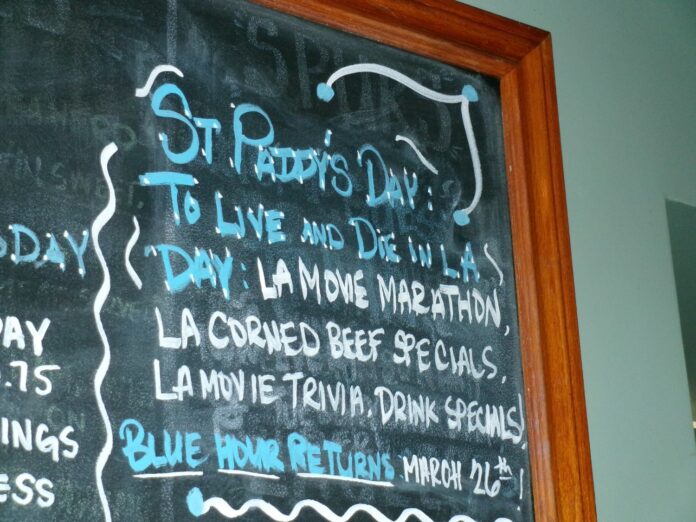 ST PADDY'S DAY:
TO LIVE AND DIE IN LA
DAY: LA MOVIE MARATHON,
LA CORNED BEEF SPECIALS,
LA MOVIE TRIVIA, DRINK SPECIALS!
BLUE HOUR RETURNS MARCH 26th!
ODAY
PAY
.75
INGS
ESS